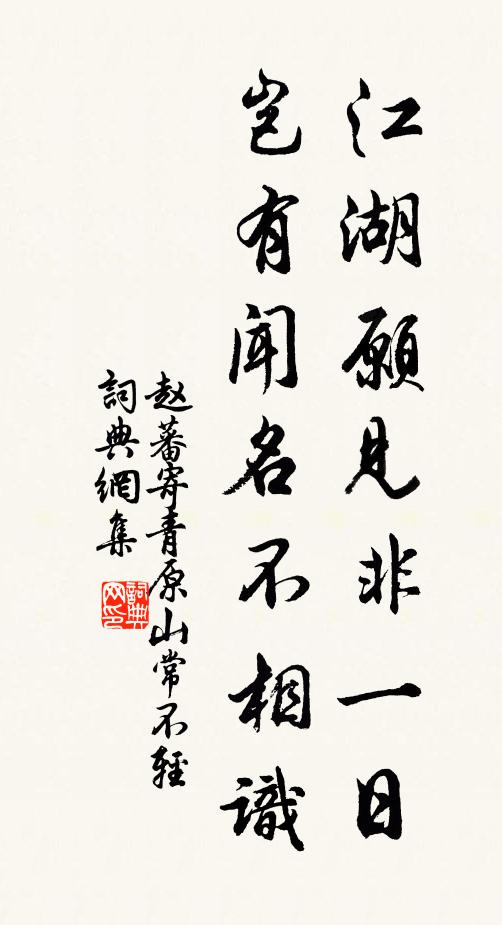 江湖願見非一日
岂有闻名不相識
赵蕃寄青原山常不輕
詞典網集
詞典网印